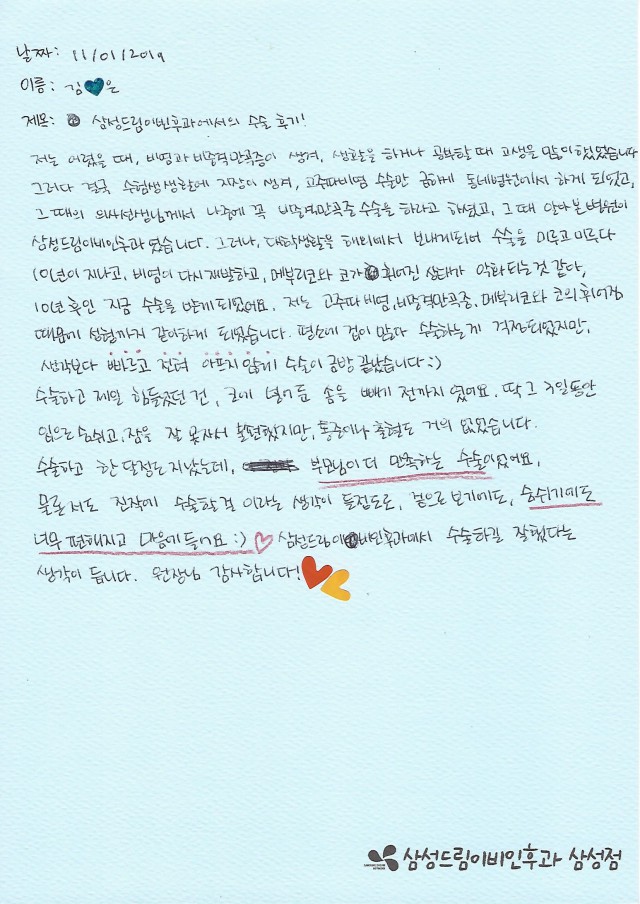 날짜: 11/01/2019
이름: 김 은
제목: 삼성드림이빈후과에서의 수술 후기!
저는 어렸을 때, 비염과 비중격만곡증이 생겨, 생활을 하거나 공부할 때 고생을 많이 했었습니다
그러다 결국 수험생 생활에 지장이 생겨, 고주파비염 수술만 급하게 동네병원에서 하게 되었고,
그 때의 의사선생님께서 나중에 꼭 비중격만곡증 수술을 하라고 하셨고, 그 때 알아본 병원이
삼성드림이비인후과 였습니다. 그러나, 대학생활을 해외에서 보내게되어 수술을 미루고 미루다
10년이 지나고, 비염이 다시 재발하고, 메부리코와 코가 휘어진 상태가 악화되는것 같아,
10년 후인 지금 수술을 받게 되었어요. 저는 고주파 비염, 비중격만곡증, 메부리코와 코의 휘어짐
때문에 성형까지 같이하게 되었습니다. 평소에 겁이 많아 수술하는게 걱정되었지만,
생각보다 빠르고 전혀 아프지 않게 수술이 금방 끝났습니다 :)
수술하고 제일 힘들었던 건, 코에 넣어둔 솜을 빼기 전까지 였어요. 딱 그 3일동안
입으로 숨쉬고, 잠을 잘 못자서 불편했지만, 통증이나 출혈도 거의 없었습니다.
수술하고 한달정도 지났는데, 부모님이 더 만족하는 수술이었어요,
물론 저도 진작에 수술할걸 이라는 생각이 들정도로, 겉으로 보기에도, 숨쉬기에도
너무 편해지고 마음에 들어요 :) 삼성드림이비인후과에서 수술하길 잘했다는
생각이 듭니다. 원장님 감사합니다!
삼성드림이비인후과 삼성점